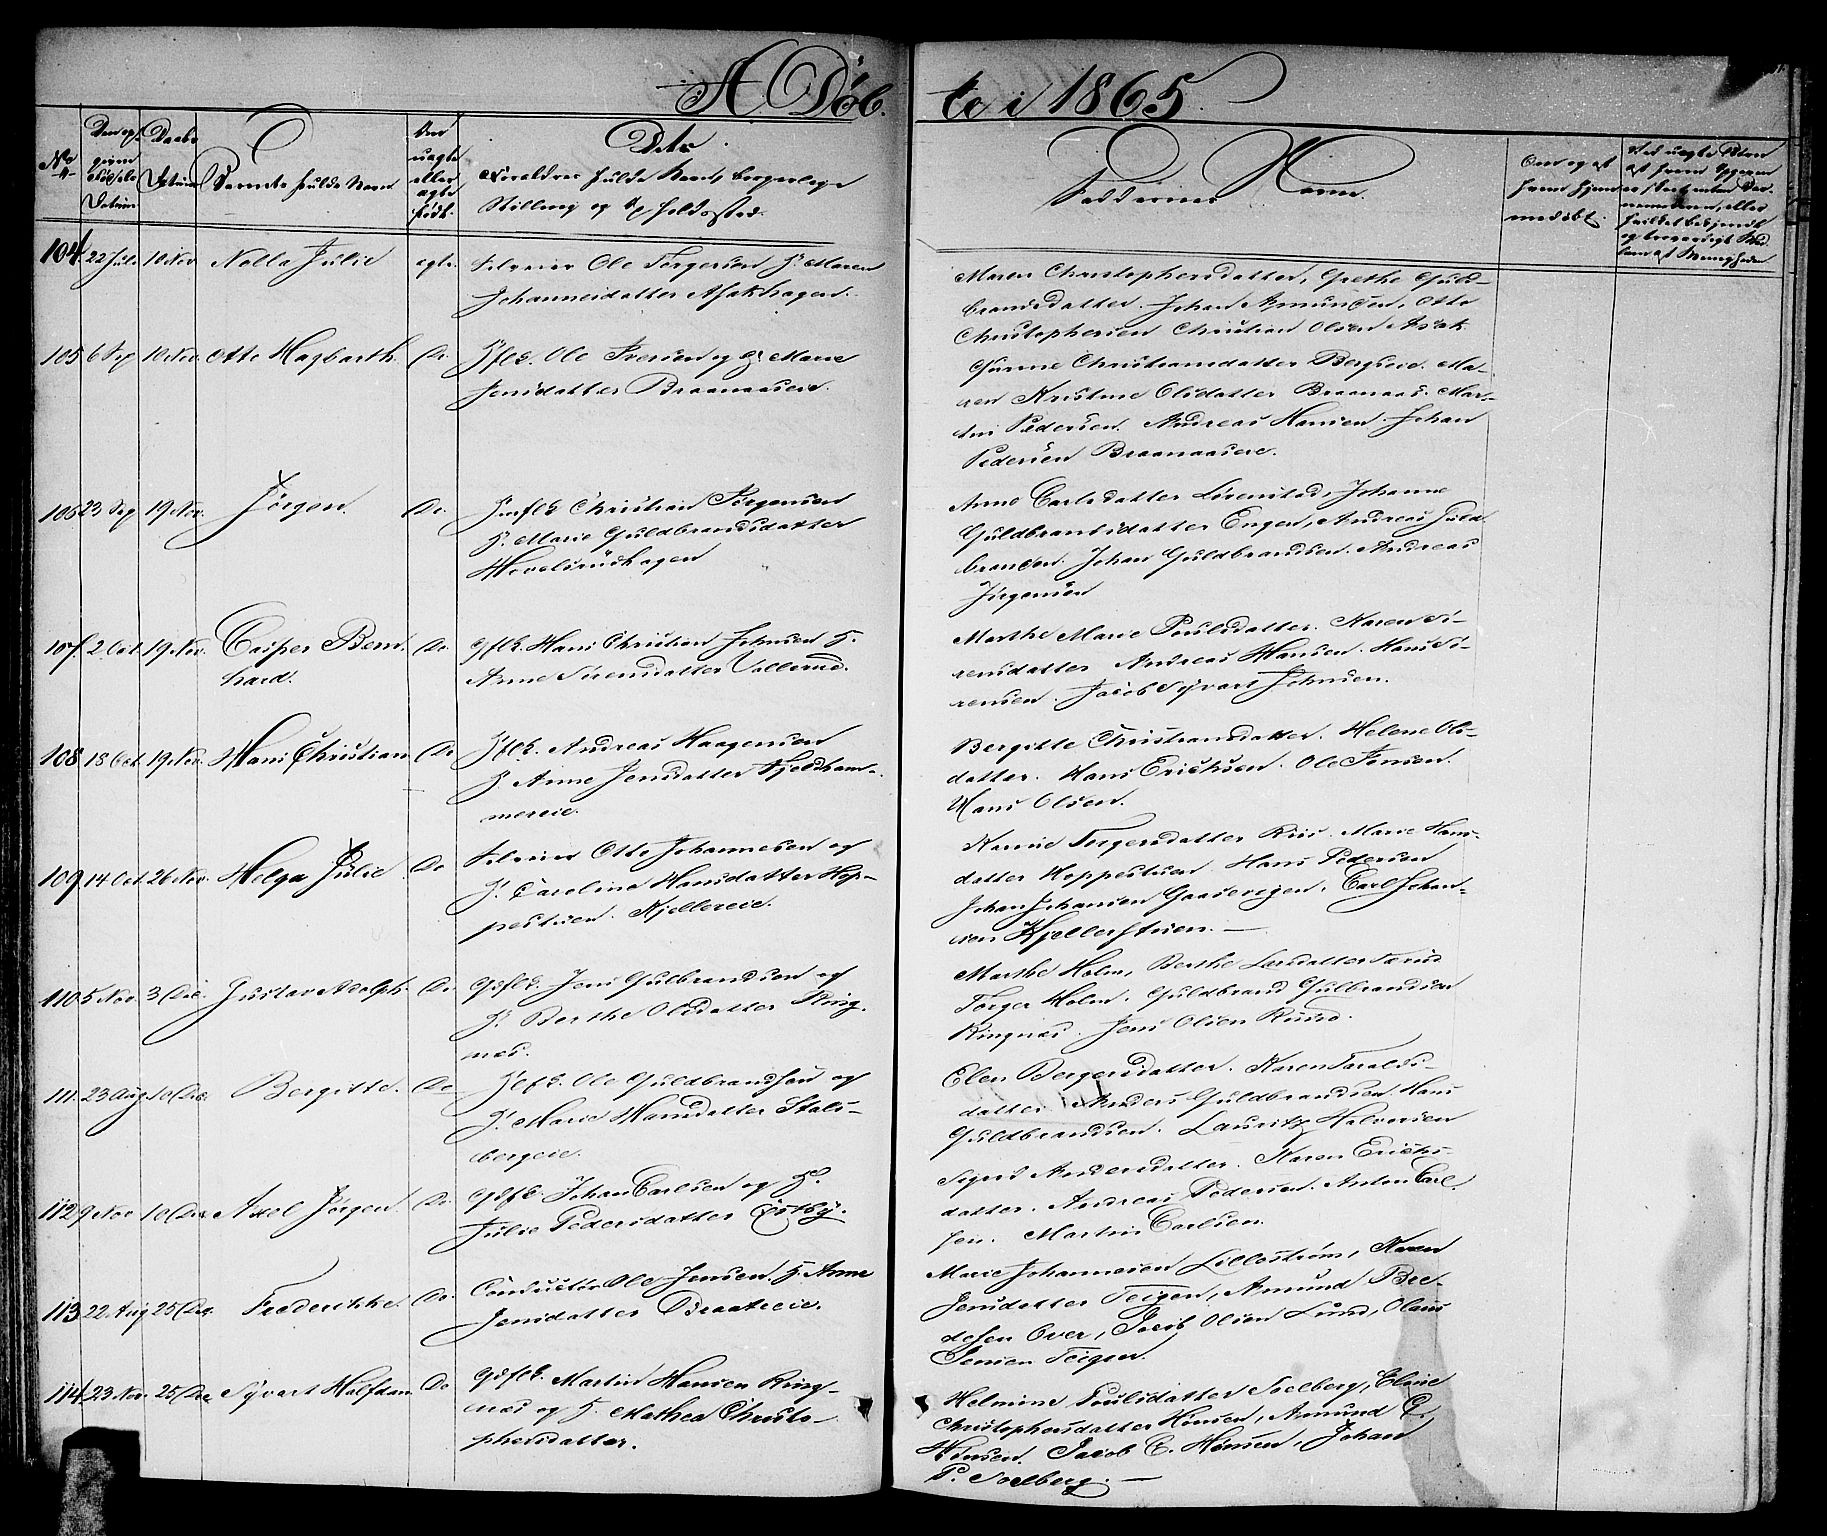 A. Døb-
te i 1865.
No
Barnets fulde Navn
Forældres fulde Navn, borgerlige
Stilling og Opholdssted.
Faddernes Navne.
Om og af
hvem hjem-
medøbt.
104. 22 Juli 10 Nov Nolla Julie egte. Selveier Ole Torgersen H. Maren
Johannesdatter Asakhagen.
Maren Christophersdatter, Grethe Guld-
brandsdatter. Johan Amundsen, Otto
Christophersen Christian Olsen Asak
105 6 Sep 10 Nov. Otto Hagbarth. Do. Ole Iversen og H. Marie
Jensdatter Braanaaseie.
Gunne Christiansdatter Bergseie. Ma-
ren Kristine Olsdatter Braanaas. Mar-
tin Pedersen. Andreas Hansen. Johan
Pedersen Braanaaseie.
106 23 Sep 19 Nov. Jørgen. Do. Christian Jørgensen
H. Marie Guldbrandsdatter
Hovelsrudhagen
Anne Carlsdatter Løvenstad, Johanne
Guldbrandsdatter Engen, Andreas Guld-
brandsen. Johan Guldbrandsen. Andreas
Jørgensen
107. 2 Oct. 19 Nov. Casper Bern- Do. Gflk. Hans Christian Johnsen H.
hard.
Anne Sørensdatter Vallerud.
Marthe Marie Poulsdatter. Karen Sø-
rensdatter Andreas Hansen. Hans Sø-
rensen. Jacob Syvart Johnsen.
108 18 Oct. 19 Nov. Hans Christian Do Andreas Haagensen
H Anne Jensdatter Fjeldham-
mereie.
Bergitte Christiansdatter. Helene Ols-
datter. Hans Ericksen. Ole Jensen.
Hans Olsen.
109 14 Oct. 26 Nov. Helga Julie Do Selveier Otto Johannesen og
H. Caroline Hansdatter Hop-
pestuen. Kjellereie.
Karine Torgersdatter Riis. Marie Hans-
datter Hoppestuen Hans Pedersen
Johan Johansen Gaasevigen. Carl Johan-
sen Kjellerstuen. —
110 5 Nov. 3 Dec. Gustav Adolph. Do. Jens Gulbrandsen og
H. Berthe Olsdatter Ring-
nes.
Marthe Holm, Berthe Larsdatter
Torger Holm. Guldbrand Gulbrandsen
Ringnæs. Jens Olsen Ruud.
111. 23 Aug 10 Dec. Bergitte. Do. Ole Guldbrandsen og
H. Marie Hansdatter Stals-
bergeie.
Elen Bergersdatter. Karen Taralds-
datter. Anders Guldbrandsen. Hans
Guldbrandsen. Lauritz Halvorsen
112 9 Nov 10 Dec Axel Jørgen. Do Johan Carlsen og H.
Julie Pedersdatter Østby.
Sigrid Andersdatter. Karen Ericks-
datter. Andreas Pedersen. Anton Carl-
sen. Martin Carlsen.
113 22 Aug 25 Dec. Frederikke. Do. Conducteur Ole Jensen H. Anne
Jensdatter Braateeie.
Marie Johannesen Lillestrøm, Karen
Jensdatter Teigen, Amund Bre-
desen Over, Jacob Olsen Lund, Olaus
Jensen Teigen.
114 23 Nov. 25 Dec Syvart Halfdan Do Martin Hansen Ring-
næs og H. Mathea Christo-
phersdatter.
Helmine Poulsdatter Soelberg, Elise
Christophersdatter Hønsen, Amund C.
Hønsen. Jacob C. Hønsen, Johan
P. Soelberg. —